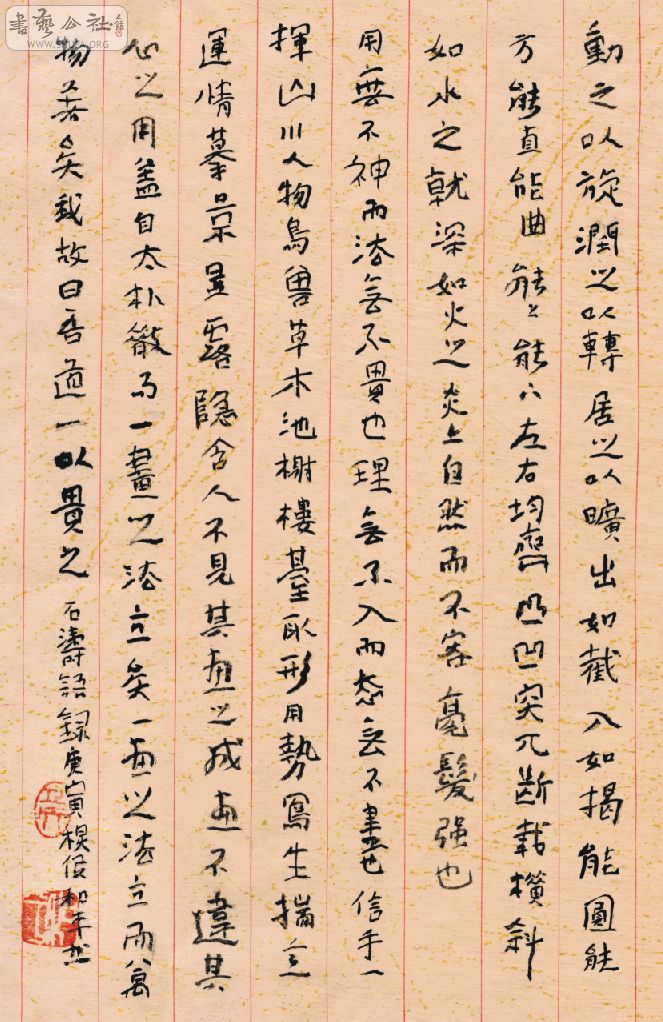 動之以旋潤之以轉居之以曠出如截入如揭能圓能
方能直能曲能上能下左右均齊凸凹突兀斷截橫斜
如水之就深如火之炎上自然而不容毫髮强也
用無不神而法無不貫也理無不入而態無不盡也信手一
揮山川人物鳥獸草木池榭樓臺取形用勢寫生揣意
運情摹景顯露隱含人不見其畫之成畫不違其
心之用蓋自太朴散而一畫之法立矣一畫之法立而萬
物著矣我故曰吾道一以貫之
石濤語録庚寅
書藝公社